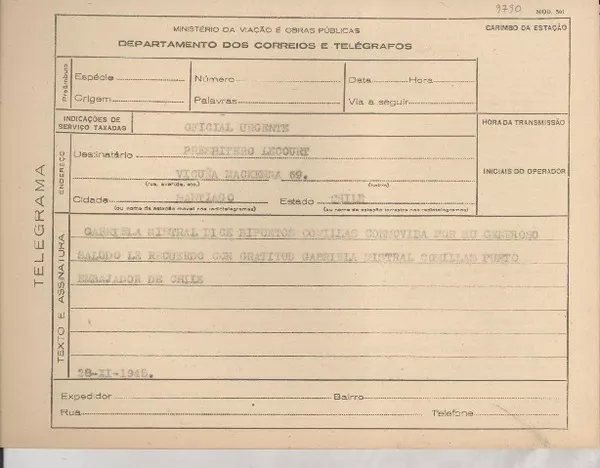 9790 MOD. 561
MINISTÉRIO DA VIAÇÃO E OBRAS PÚBLICAS
DEPARTAMENTO DOS CORREIOS E TELÉGRAFOS
CARIMBO DA ESTAÇÃO
TELEGRAMA
Preâmbulo
Espécie Número Data Hora
Origem Palavras Via a seguir
INDICAÇÕES DE SERVIÇO TAXADAS
OFICIAL URGENTE
HORA DA TRANSMISSÃO
ENDEREÇO
Destinatário PRESBITERO LECOURT
VICUÑA MACKENNA 69.
INICIAIS DO OPERADOR
(rua, avenida, etc.) (bairro)
Cidade SANTIAGO Estado CHILE
(ou nome da estação movel nos radiotelegramas) (ou nome da estação terrestre nos radiotelegramas)
TEXTO E ASSINATURA
GABRIELA MISTRAL DICE DIPUNTOS COMILLAS CONMOVIDA POR SU GENEROSO
SALUDO LE RECUERDO CON GRATITUD GABRIELA MISTRAL COMILLAS PUNTO
EMBAJADOR DE CHILE
28-XI-1945.
Expedidor Bairro
Rua Telefone